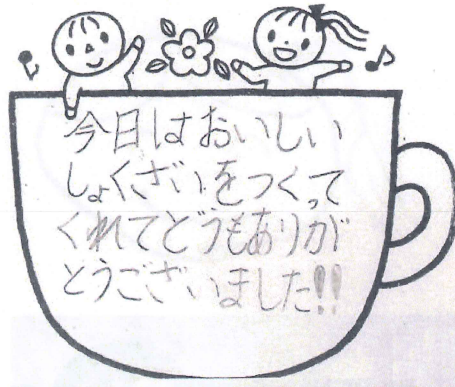 今日はおいしい
しょくざいをつくって
くれてどうもありが
とうございました!!